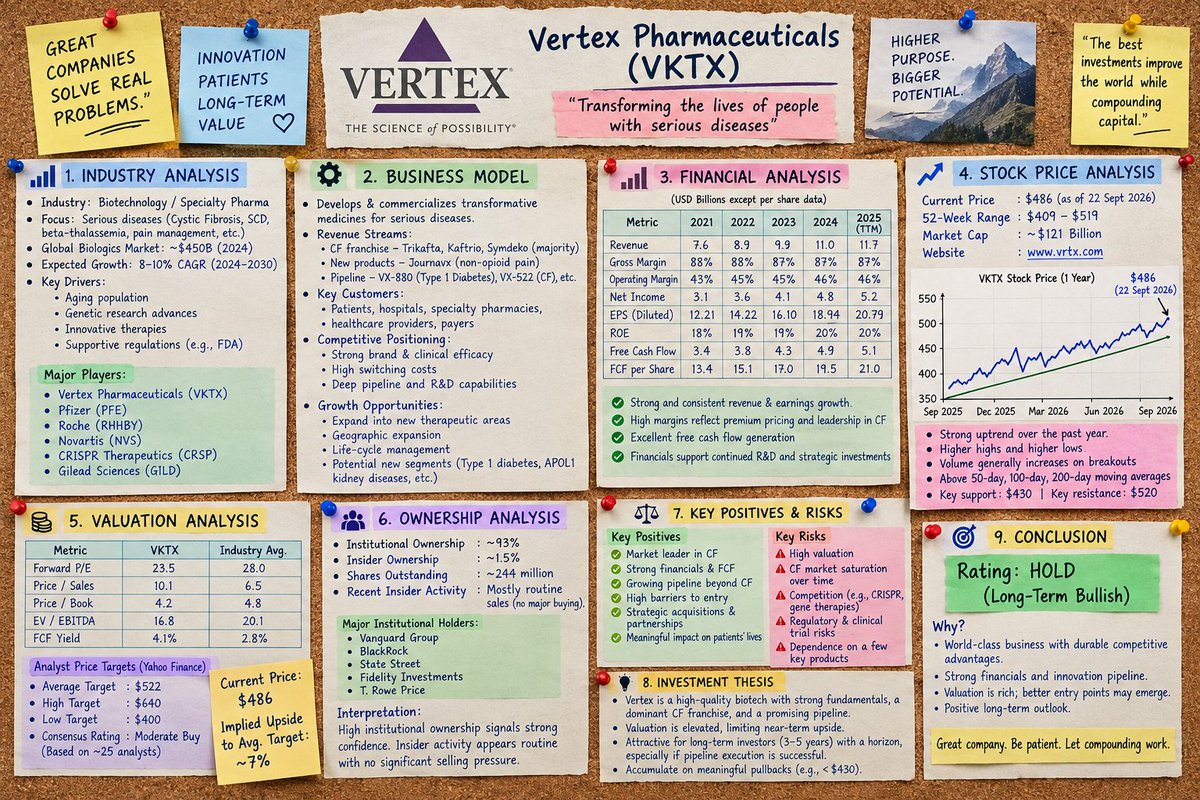 GREAT
COMPANIES
SOLVE REAL
PROBLEMS."
INNOVATION
PATIENTS
LONG-TERM
VALUE
VERTEX®
THE SCIENCE of POSSIBILITY®
Vertex Pharmaceuticals
(VKTX)
"Transforming the lives of people
with serious diseases"
HIGHER
PURPOSE.
BIGGER
POTENTIAL.
"The best
investments improve
the world while
compounding
capital."
1. INDUSTRY ANALYSIS
• Industry: Biotechnology / Specialty Pharma
• Focus: Serious diseases (Cystic Fibrosis, SCD,
beta-thalassemia, pain management, etc.)
• Global Biologics Market: ~$450B (2024)
• Expected Growth: 8–10% CAGR (2024–2030)
• Key Drivers:
• Aging population
• Genetic research advances
• Innovative therapies
• Supportive regulations (e.g., FDA)
Major Players:
• Vertex Pharmaceuticals (VKTX)
• Pfizer (PFE)
• Roche (RHHBY)
• Novartis (NVS)
• CRISPR Therapeutics (CRSP)
• Gilead Sciences (GILD)
2. BUSINESS MODEL
• Develops & commercializes transformative
medicines for serious diseases.
• Revenue Streams:
• CF franchise – Trikafta, Kaftrio, Symdeko (majority)
• New products – Journavx (non-opioid pain)
• Pipeline – VX-880 (Type 1 Diabetes), VX-522 (CF), etc.
• Key Customers:
• Patients, hospitals, specialty pharmacies,
healthcare providers, payers
• Competitive Positioning:
• Strong brand & clinical efficacy
• High switching costs
• Deep pipeline and R&D capabilities
• Growth Opportunities:
• Expand into new therapeutic areas
• Geographic expansion
• Life-cycle management
• Potential new segments (Type 1 diabetes, APOL1
kidney diseases, etc.)
3. FINANCIAL ANALYSIS
(USD Billions except per share data)
Metric 2021 2022 2023 2024 2025 (TTM)
Revenue 7.6 8.9 9.9 11.0 11.7
Gross Margin 88% 88% 87% 87% 87%
Operating Margin 43% 45% 45% 46% 46%
Net Income 3.1 3.6 4.1 4.8 5.2
EPS (Diluted) 12.21 14.22 16.10 18.94 20.79
ROE 18% 19% 19% 20% 20%
Free Cash Flow 3.4 3.8 4.3 4.9 5.1
FCF per Share 13.4 15.1 17.0 19.5 21.0
Strong and consistent revenue & earnings growth.
High margins reflect premium pricing and leadership in CF
Excellent free cash flow generation
Financials support continued R&D and strategic investments
4. STOCK PRICE ANALYSIS
Current Price : $486 (as of 22 Sept 2026)
52-Week Range : $409 – $519
Market Cap : ~$121 Billion
Website : www.vrtx.com
VKTX Stock Price (1 Year)
$486
(22 Sept 2026)
550
500
450
400
350
Sep 2025 Dec 2025 Mar 2026 Jun 2026 Sep 2026
• Strong uptrend over the past year.
• Higher highs and higher lows
• Volume generally increases on breakouts
• Above 50-day, 100-day, 200-day moving averages
• Key support: $430 | Key resistance: $520
5. VALUATION ANALYSIS
Metric VKTX Industry Avg.
Forward P/E 23.5 28.0
Price / Sales 10.1 6.5
Price / Book 4.2 4.8
EV / EBITDA 16.8 20.1
FCF Yield 4.1% 2.8%
Analyst Price Targets (Yahoo Finance)
• Average Target : $522
• High Target : $640
• Low Target : $400
• Consensus Rating : Moderate Buy
(Based on ~25 analysts)
Current Price:
$486
Implied Upside
to Avg. Target:
~7%
6. OWNERSHIP ANALYSIS
• Institutional Ownership : ~93%
• Insider Ownership : ~1.5%
• Shares Outstanding : ~244 million
• Recent Insider Activity : Mostly routine
sales (no major buying).
Major Institutional Holders:
• Vanguard Group
• BlackRock
• State Street
• Fidelity Investments
• T. Rowe Price
Interpretation:
High institutional ownership signals strong
confidence. Insider activity appears routine
with no significant selling pressure.
7. KEY POSITIVES & RISKS
Key Positives
Market leader in CF
Strong financials & FCF
Growing pipeline beyond CF
High barriers to entry
Strategic acquisitions &
partnerships
Meaningful impact on patients' lives
Key Risks
High valuation
CF market saturation
over time
Competition (e.g., CRISPR,
gene therapies)
Regulatory & clinical
trial risks
Dependence on a few
key products
8. INVESTMENT THESIS
• Vertex is a high-quality biotech with strong fundamentals, a
dominant CF franchise, and a promising pipeline.
• Valuation is elevated, limiting near-term upside.
• Attractive for long-term investors (3–5 years) with a horizon,
especially if pipeline execution is successful.
• Accumulate on meaningful pullbacks (e.g., < $430).
9. CONCLUSION
Rating: HOLD
(Long-Term Bullish)
Why?
• World-class business with durable competitive
advantages.
• Strong financials and innovation pipeline.
• Valuation is rich; better entry points may emerge.
• Positive long-term outlook.
Great company. Be patient. Let compounding work.